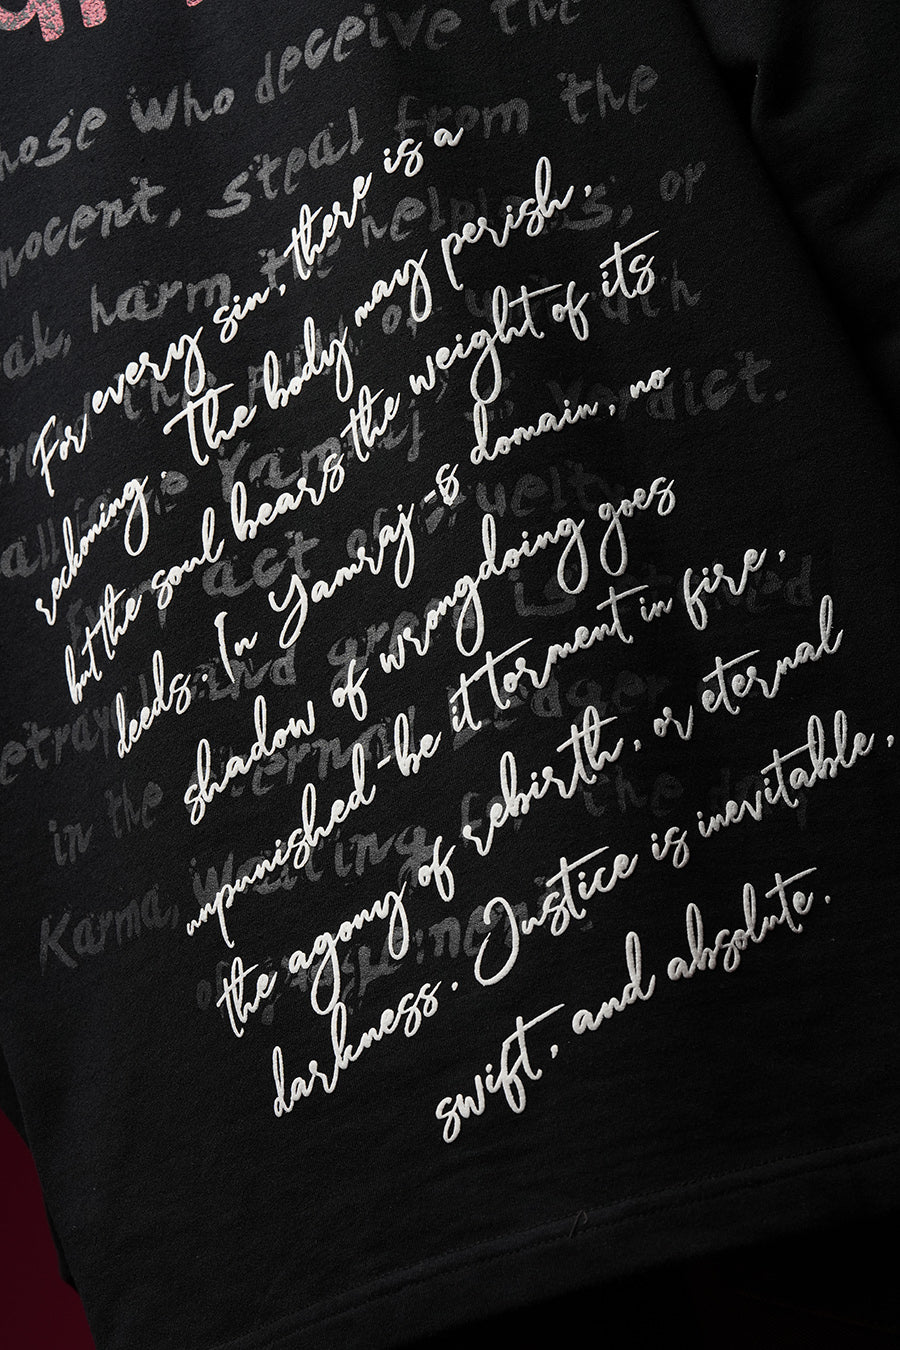 those who deceive the
innocent, steal from the
weak, harm the helpless, or
wrath
Yamraj's verdict.
act of
and greed is
in the Ledger
Karma, waiting for the
For every sin, there is a
reckoning. The body may perish,
but the soul bears the weight of its
deeds. In Yamraj-s domain, no
shadow of wrongdoing goes
unpunished-be it torment in fire,
the agony of rebirth, or eternal
darkness. Justice is inevitable,
swift, and absolute.